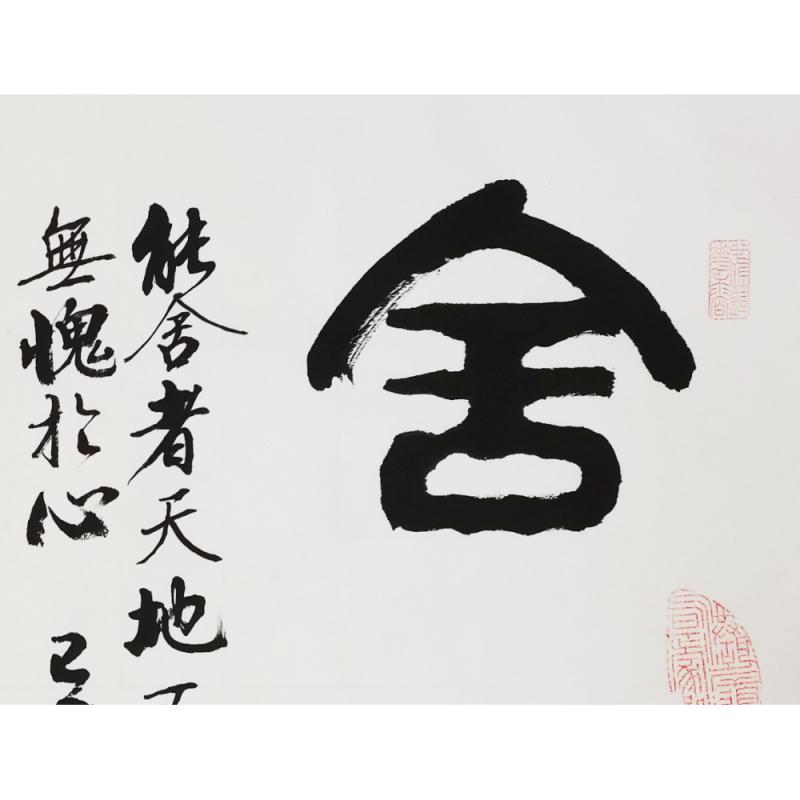 舍
能舍者天地
無愧於心 己